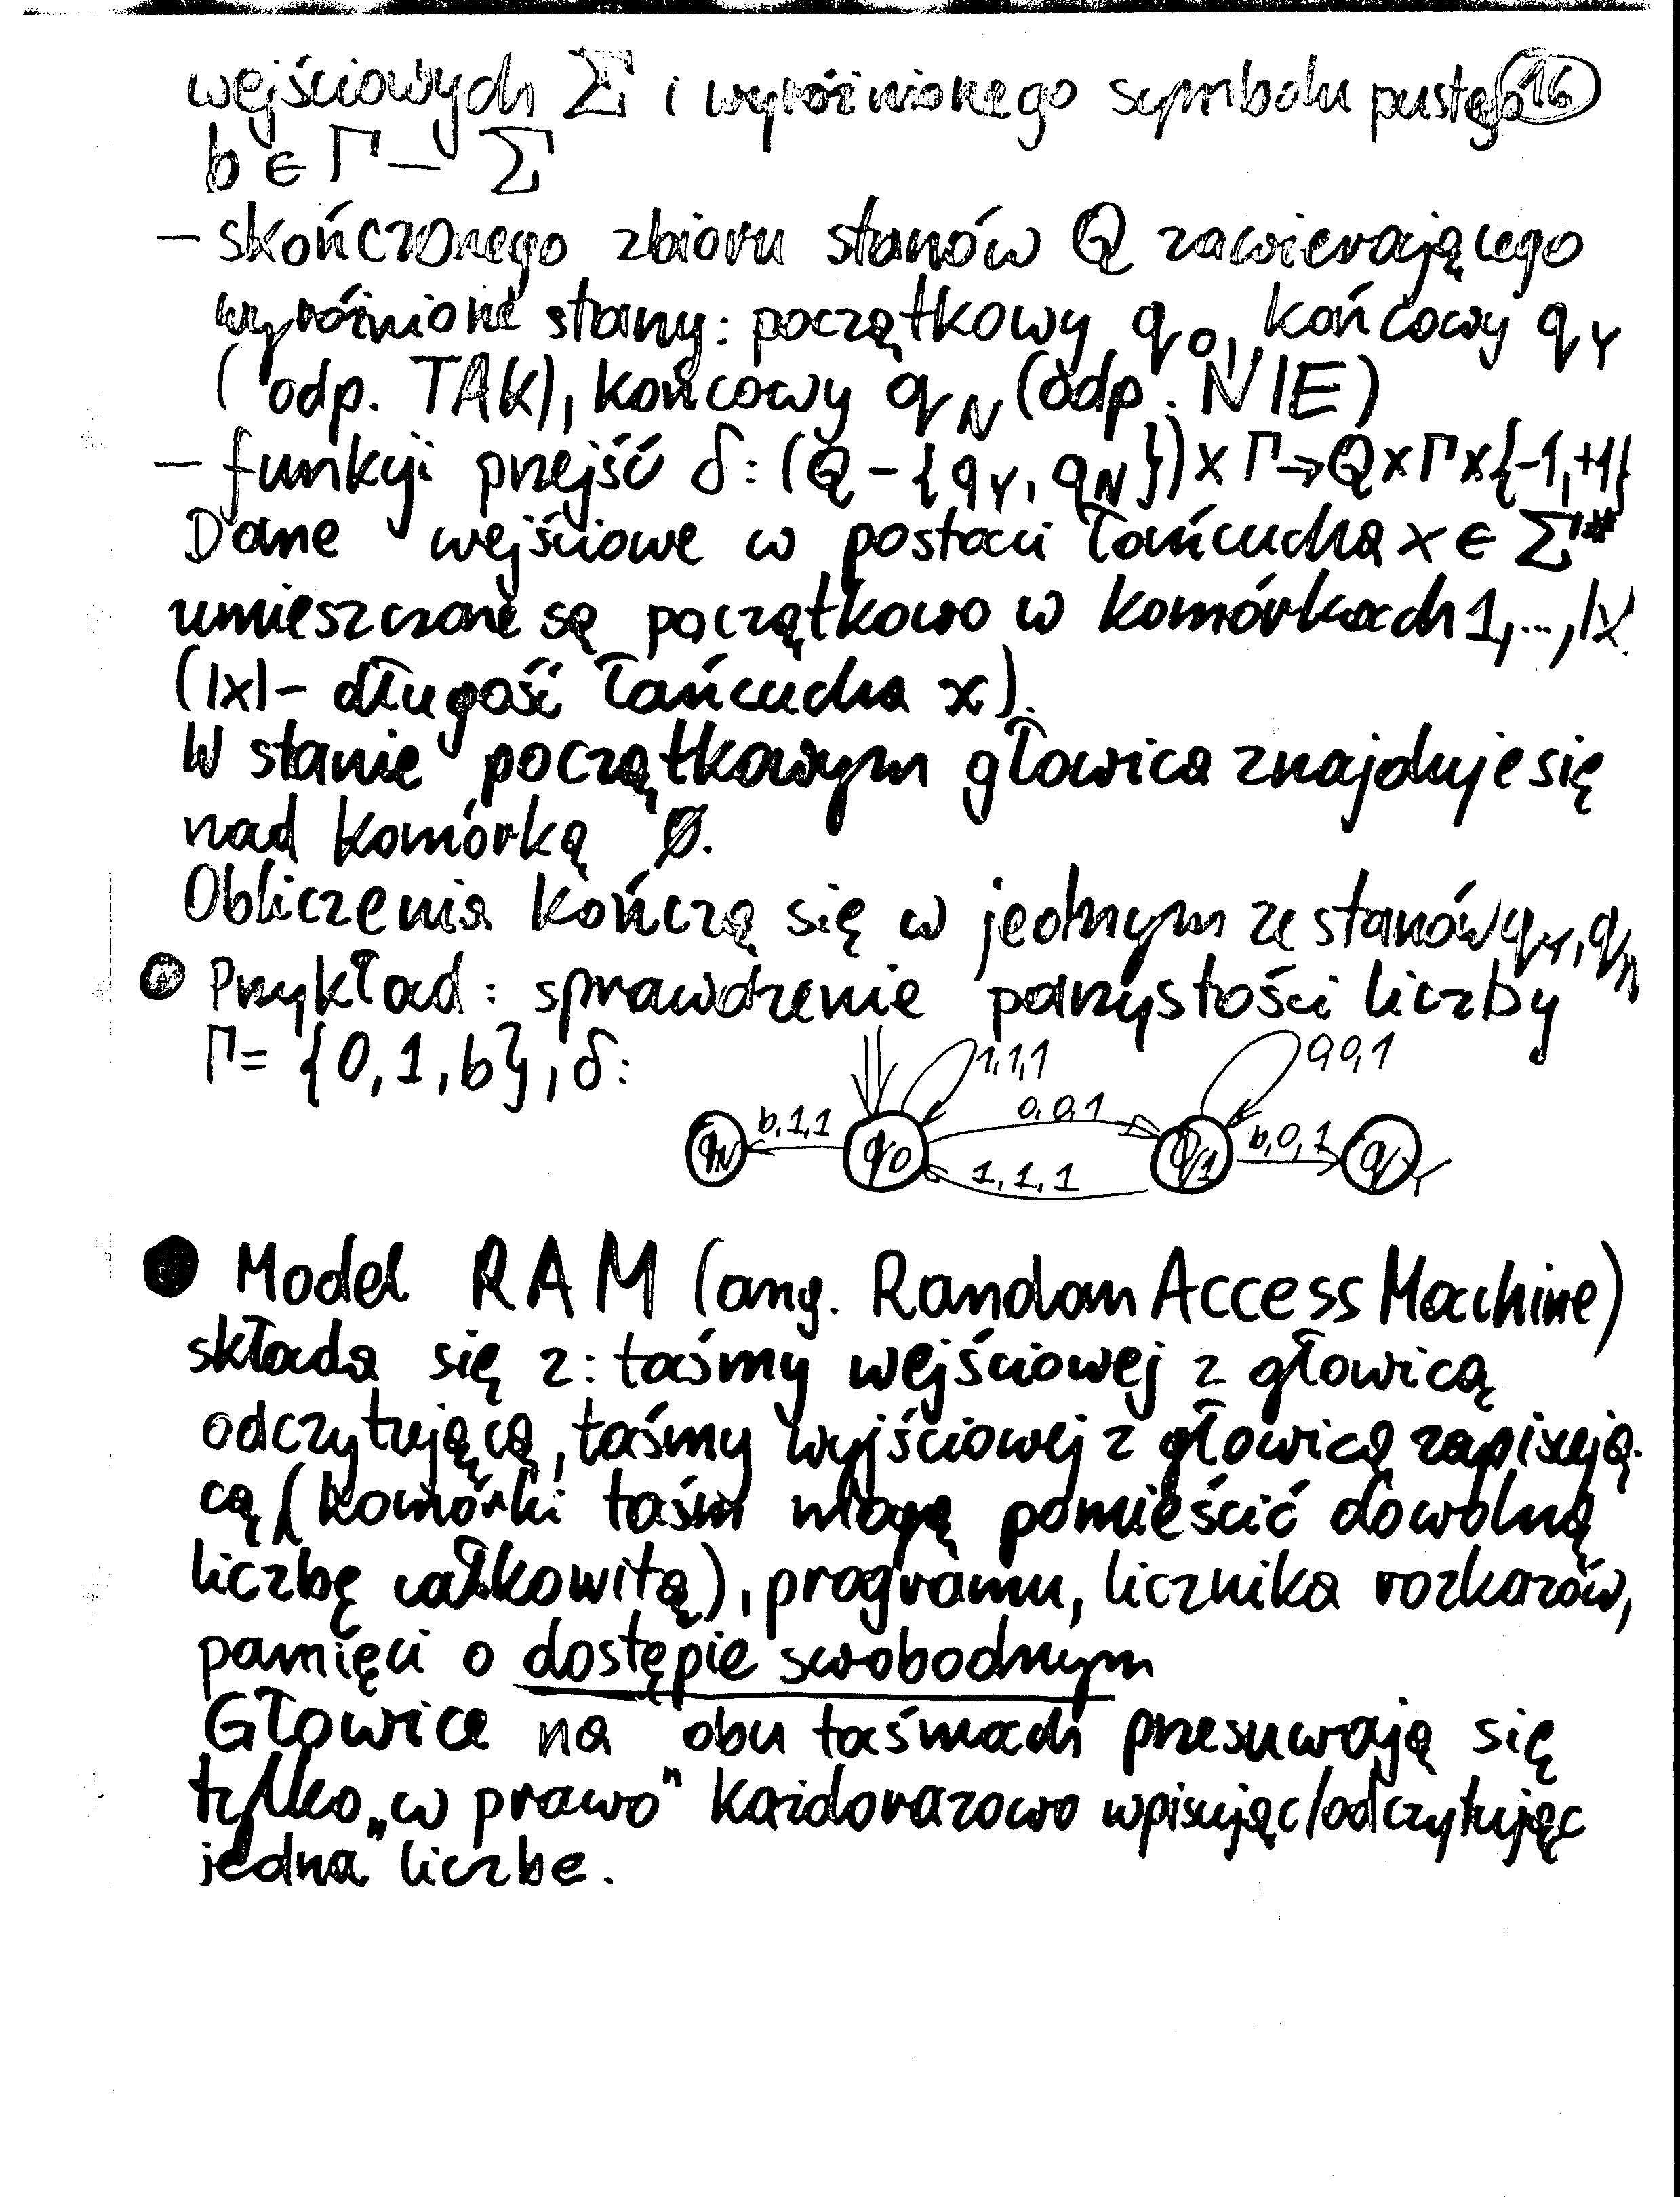 wejściowych Σ i wyróżnionego symbolu pustego 16
b ∈ Γ – Σ
– skończonego zbioru stanów Q zawierającego
wyróżnione stany: początkowy q0, końcowy qY
(odp. TAK), końcowy qN (odp. NIE)
– funkcji przejść δ: (Q – {qY, qN}) × Γ → Q × Γ × {-1, +1}
Dane wejściowe w postaci łańcucha x ∈ Σ*
umieszczone są początkowo w komórkach 1, ..., |x|
(|x| – długość łańcucha x).
W stanie początkowym głowica znajduje się
nad komórką 0.
Obliczenia kończą się w jednym ze stanów qY, qN
Przykład: sprawdzenie parzystości liczby
Γ = {0, 1, b}, δ:
1,1,1 0,0,1
b,1,1 0,0,1 b,0,1
qN q0 q1 qY
1,1,1
Model RAM (ang. Random Access Machine)
składa się z: taśmy wejściowej z głowicą
odczytującą, taśmy wyjściowej z głowicą zapisują-
cą (komórki taśm mogą pomieścić dowolną
liczbę całkowitą), programu, licznika rozkazów,
pamięci o dostępie swobodnym
Głowice na obu taśmach przesuwają się
tylko „w prawo" każdorazowo wpisując/odczytując
jedną liczbę.